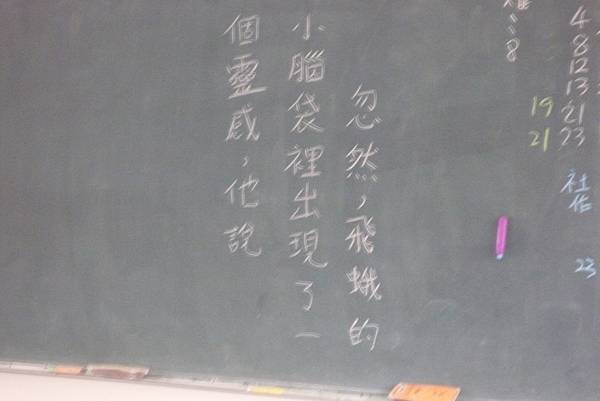 忽然,飛蛾的
小腦袋裡出現了一
個靈感,他說
4
8
12
13
21
23
19
21
社作
23
8